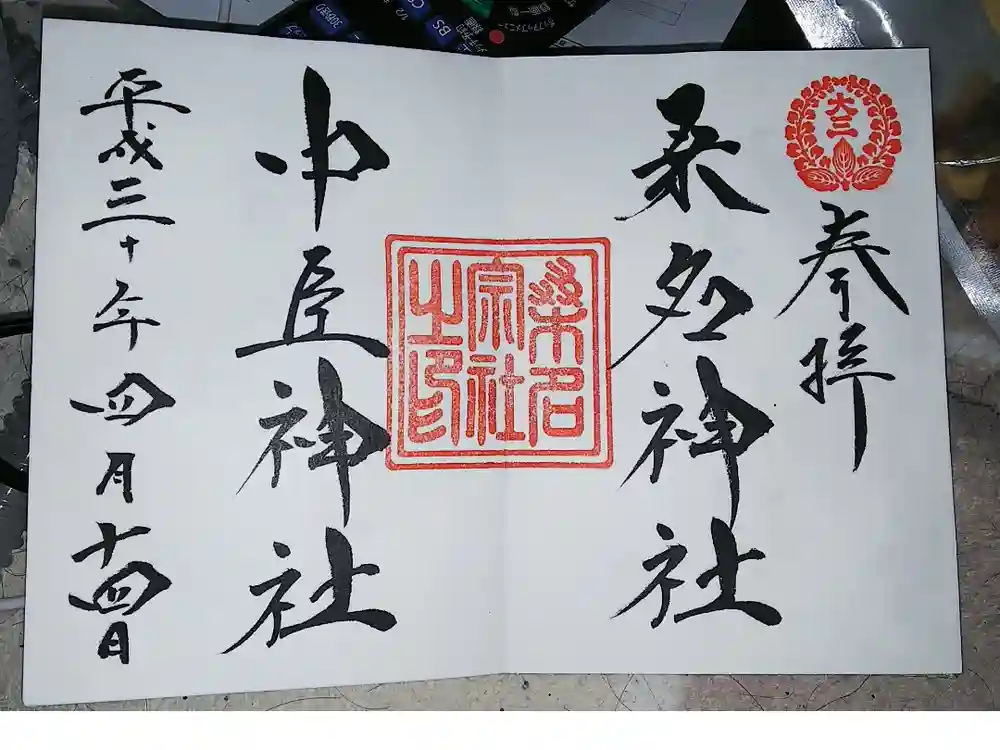 奉拝
大三
桑名神社
桑名
宗社
之印
中臣神社
平成三十年四月十四日
BS